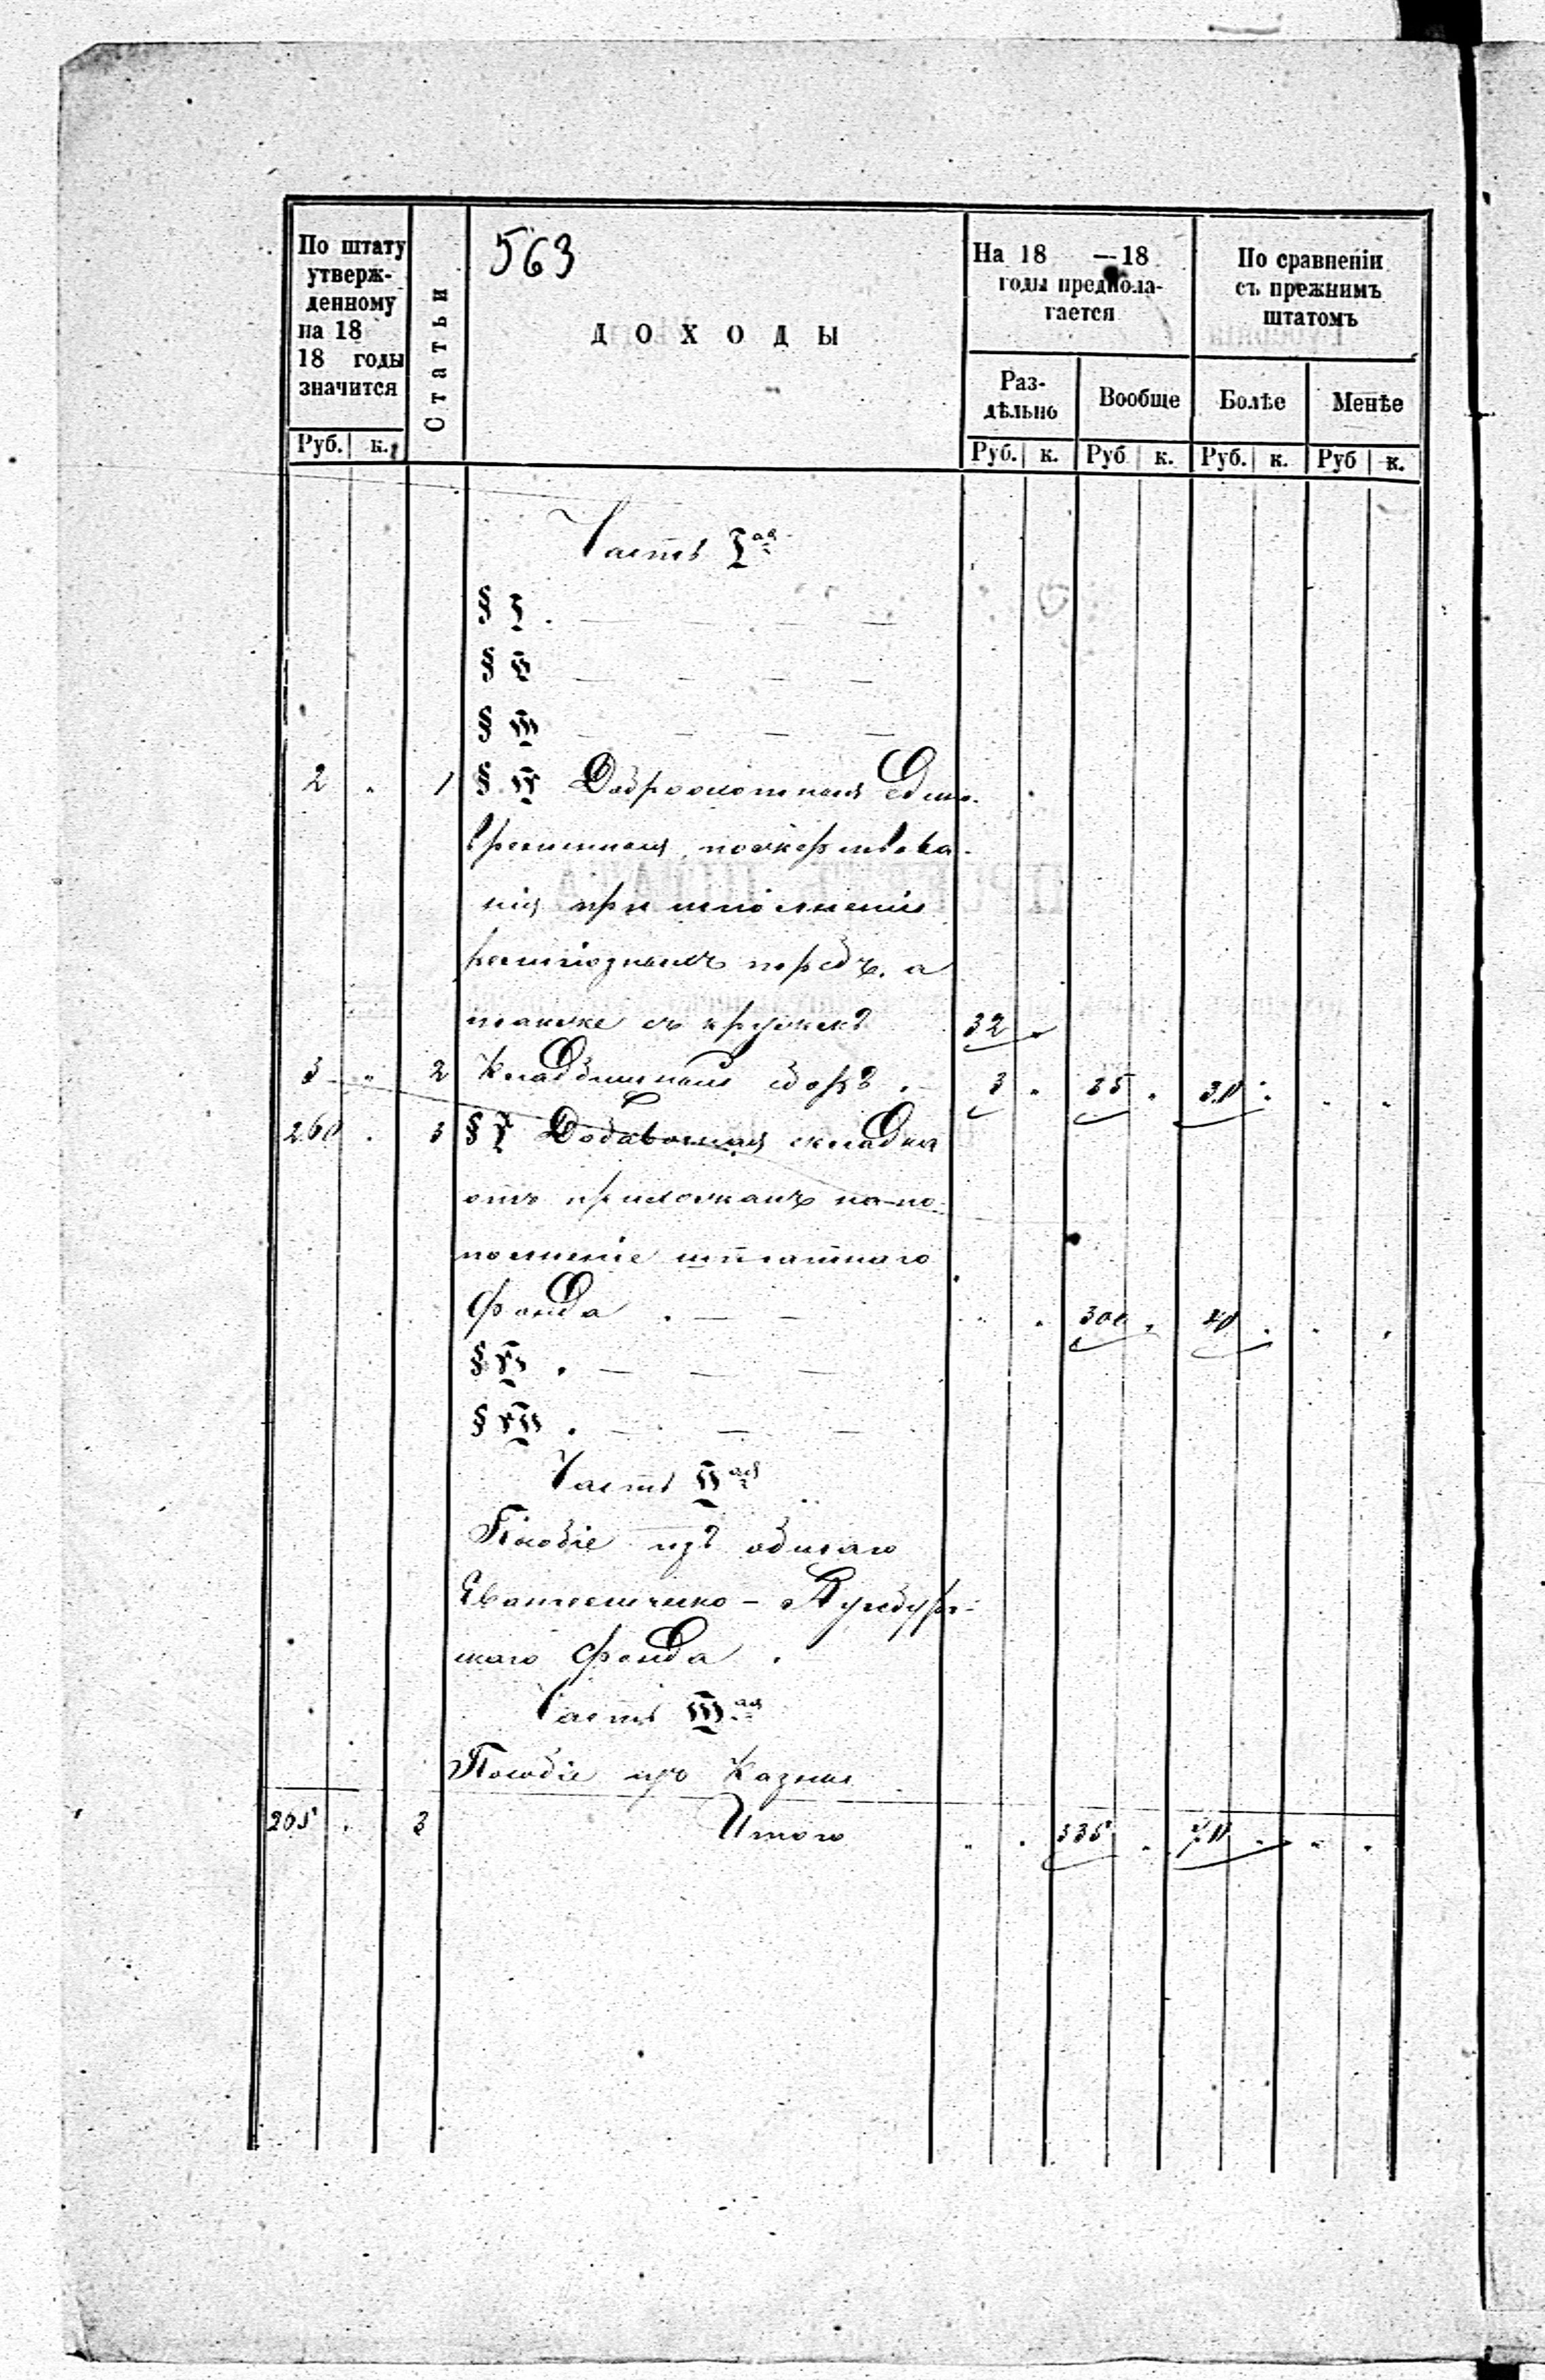 563
По штату
утверж-
денному
на 18
18 годы
значится
Руб. к.
Статьи
ДОХОДЫ
На 18 — 18
годы предпола-
гается
Раз-
дѣльно
Вообще
Руб. к. Руб к.
По сравненіи
съ прежнимъ
штатомъ
Болѣе
Менѣе
Руб. к. Руб к.
Часть I ая
§ I. — — — —
§ II — — — —
§ III — — — —
2 " 1 § IV Доброохотныя едино-
временныя пожертвова-
нія при исполненіи
религіозныхъ требъ, а
также съ кружекъ 32 "
3 " 2 Кладбищный сборъ . 3 " 35 " 30 " " "
260 " 3 § V Добавочная складка
отъ прихожанъ на по-
полненіе штатнаго
фонда . — — " " 300 " 40 " " "
§ VI . — — —
§ VII . — — —
Часть II ая
Пособіе изъ общаго
Евангелическо-Аугсбург-
скаго фонда .
Часть III ая
Пособіе изъ Казны
265 " 3 Итого " " 335 " 70 " " "